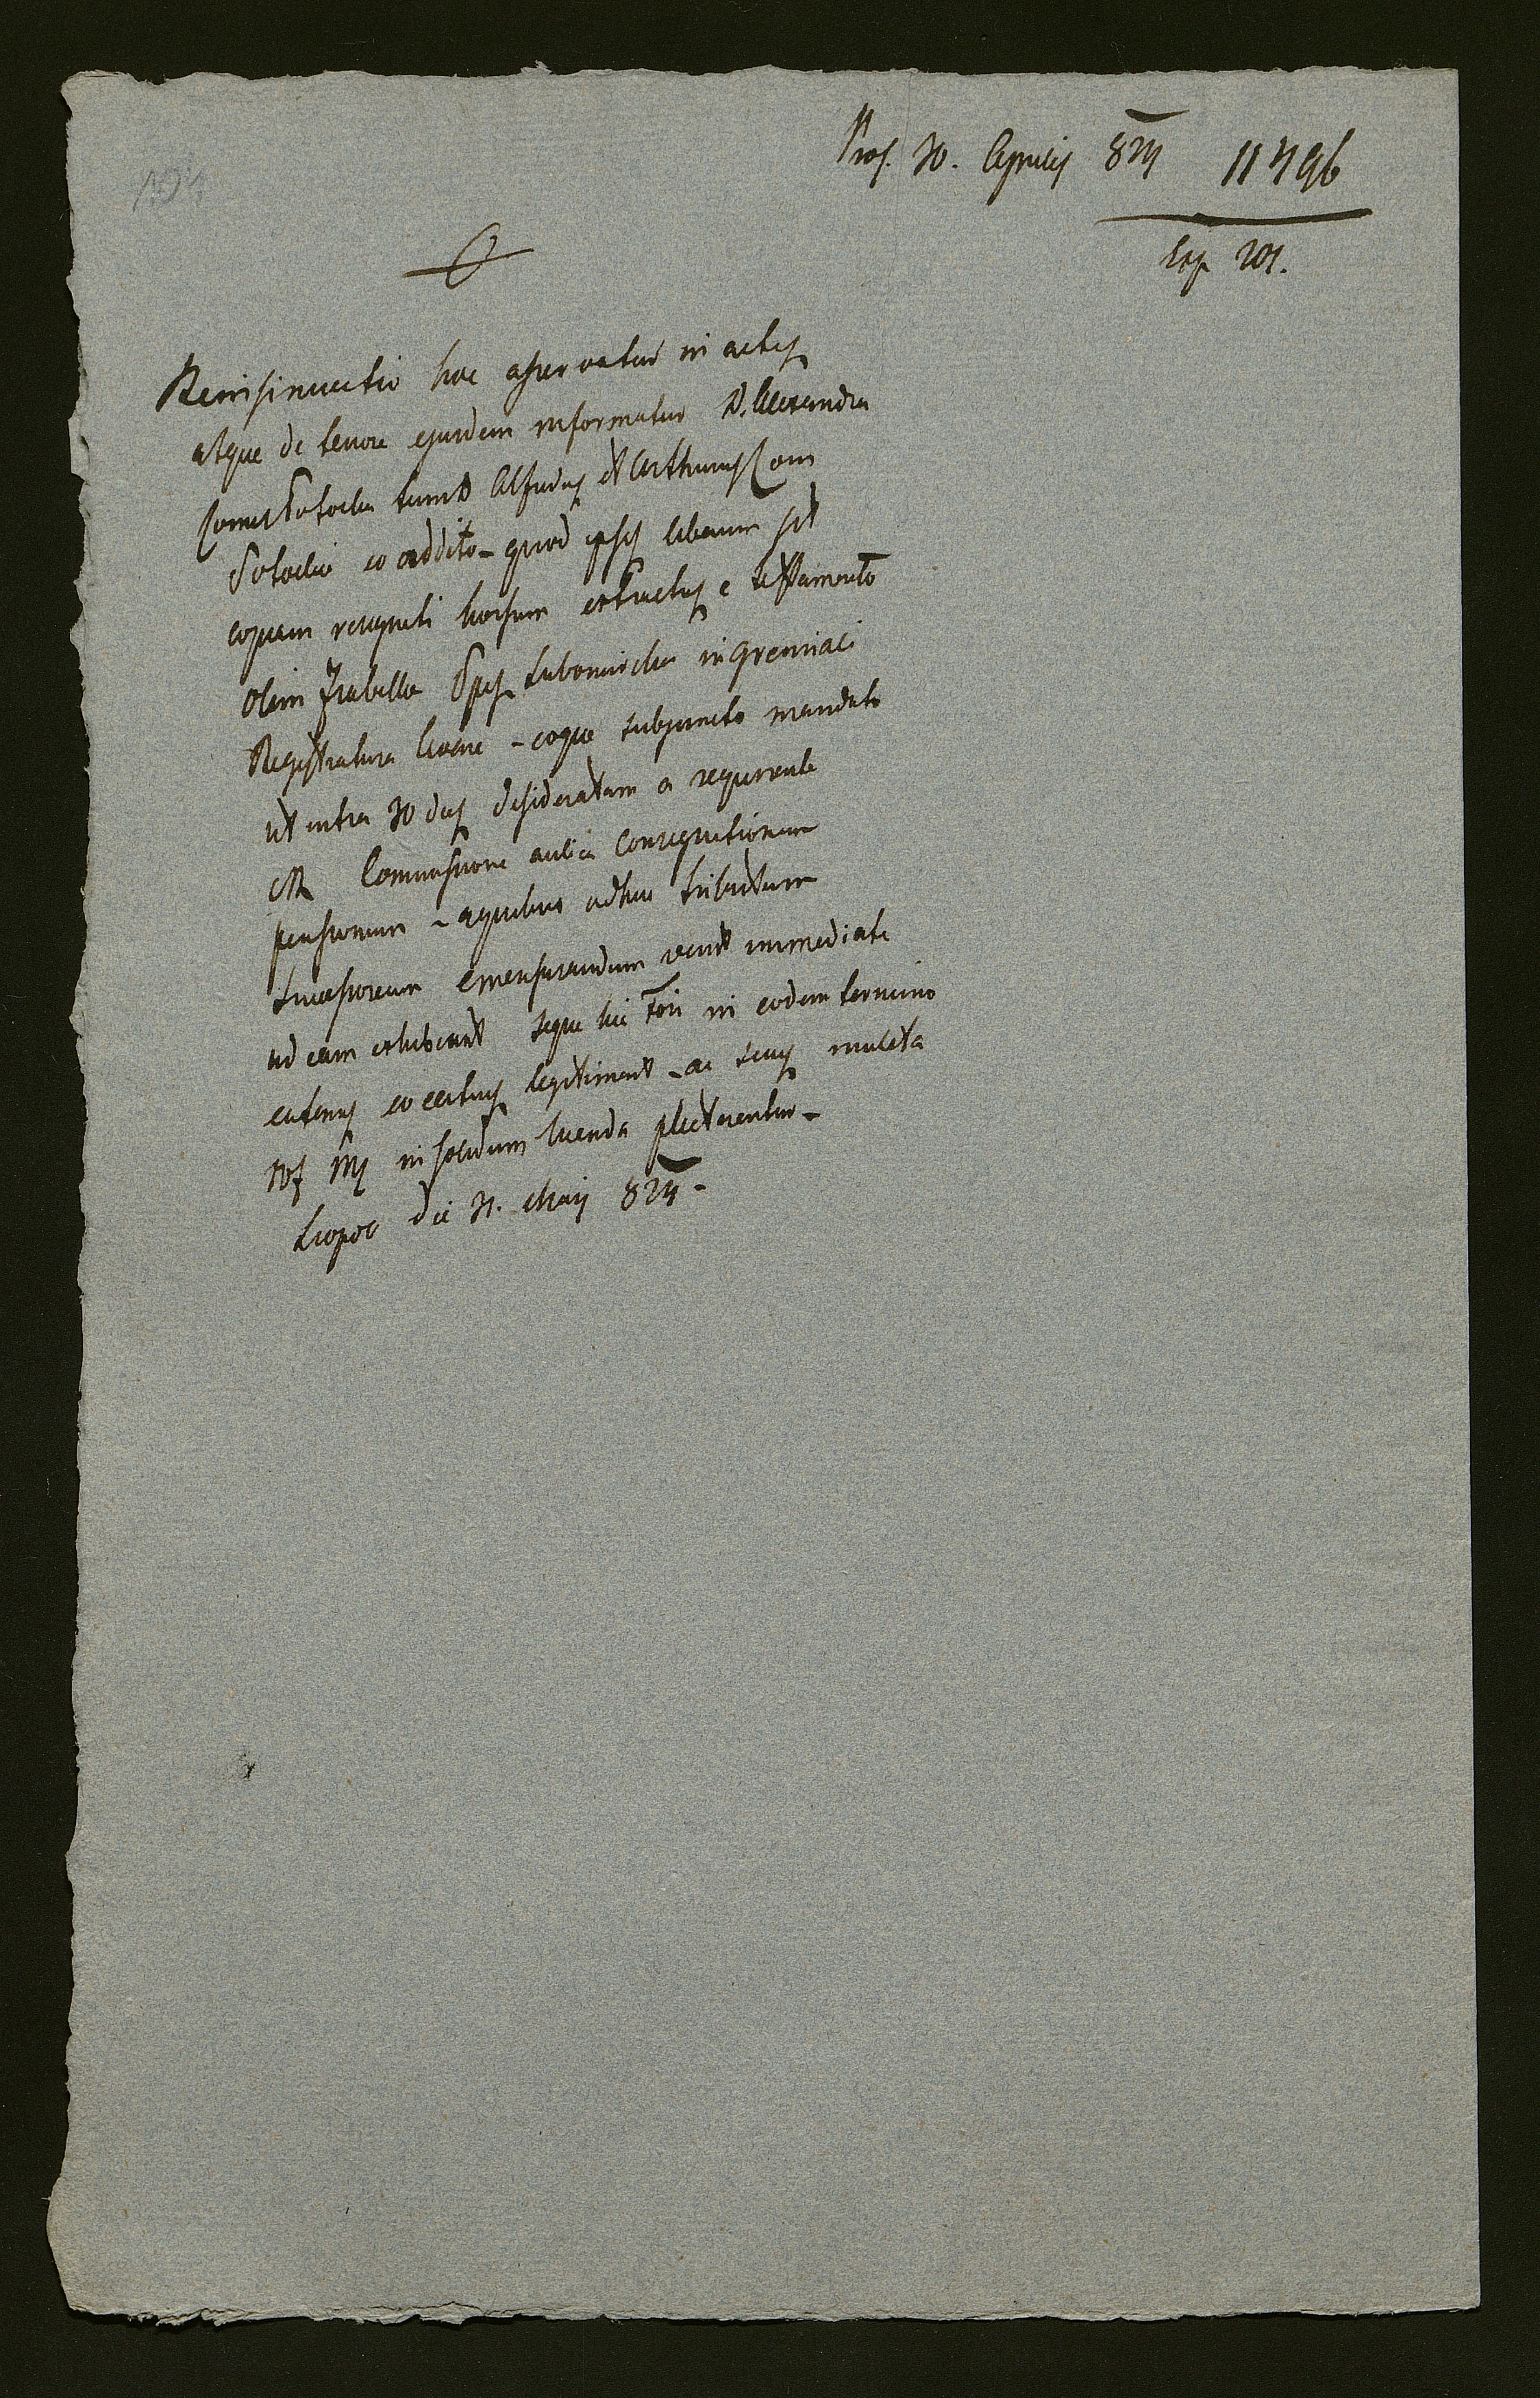 Præs. 30. Aprilis 824 11796
Exp 201.
Reinsinuatio hæc asservatur in actis
atque de tenore ejusdem informatur D. Alexandra
Comes Potocka tum D Alfredus et Arthurus Com
Potockie eo addito – quod ipsis liberum sit
copiam requisiti horsum extractus e testamento
olim Isabellæ Ppis Lubomirska in gremiali
Registratura levare – eoque subjuncto mandato
ut intra 30 dies desideratam a requirente
CR Commissione aulica Consignationem
pensionum – a quibus adhuc tributum
successorium emensurandum venit immediate
ad eam exhibeant seque hic Fori in eodem termino
eatenus eo certius legitiment – ac secus mulcta
in solidum luenda plecterentur –
Leopol die 31. Maij 824 –